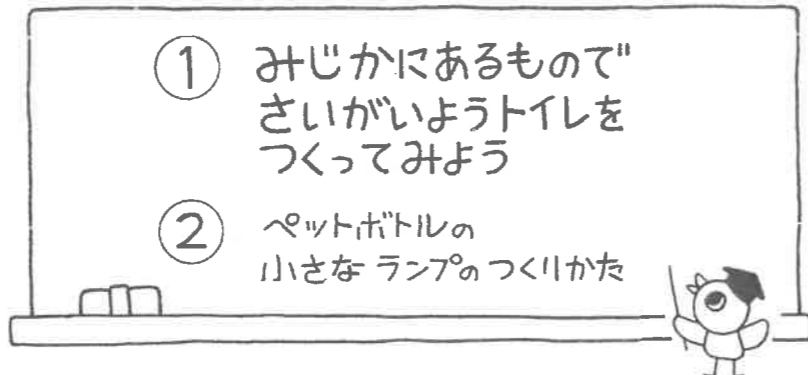 ① みじかにあるもので
さいがいようトイレを
つくってみよう
② ペットボトルの
小さな ランプの つくりかた